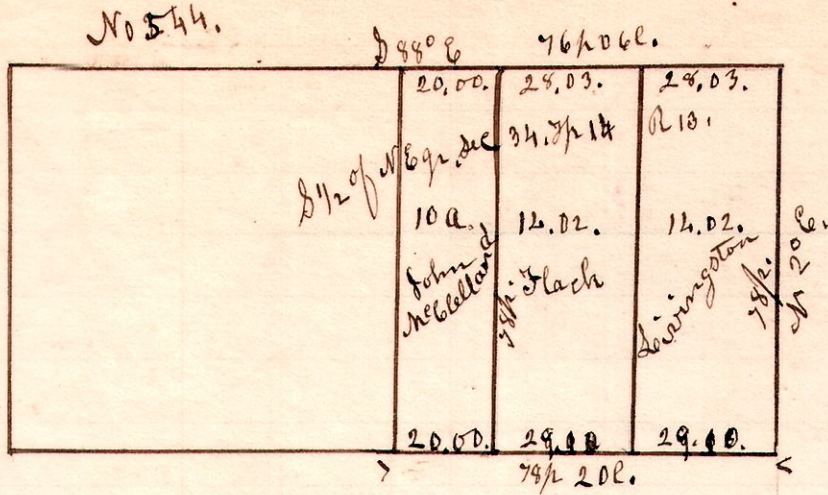 No 544.
S 88° E 76p 06l.
20.00. 28.03. 28.03.
S 1/2 of N E qr. Sec 34. Tp 14 R 13.
10 a. 14.02. 14.02.
John McClelland
78p. Flack
Livingston
78p.
N 2° E.
20.00. 29.10 29.10.
78p 20l.